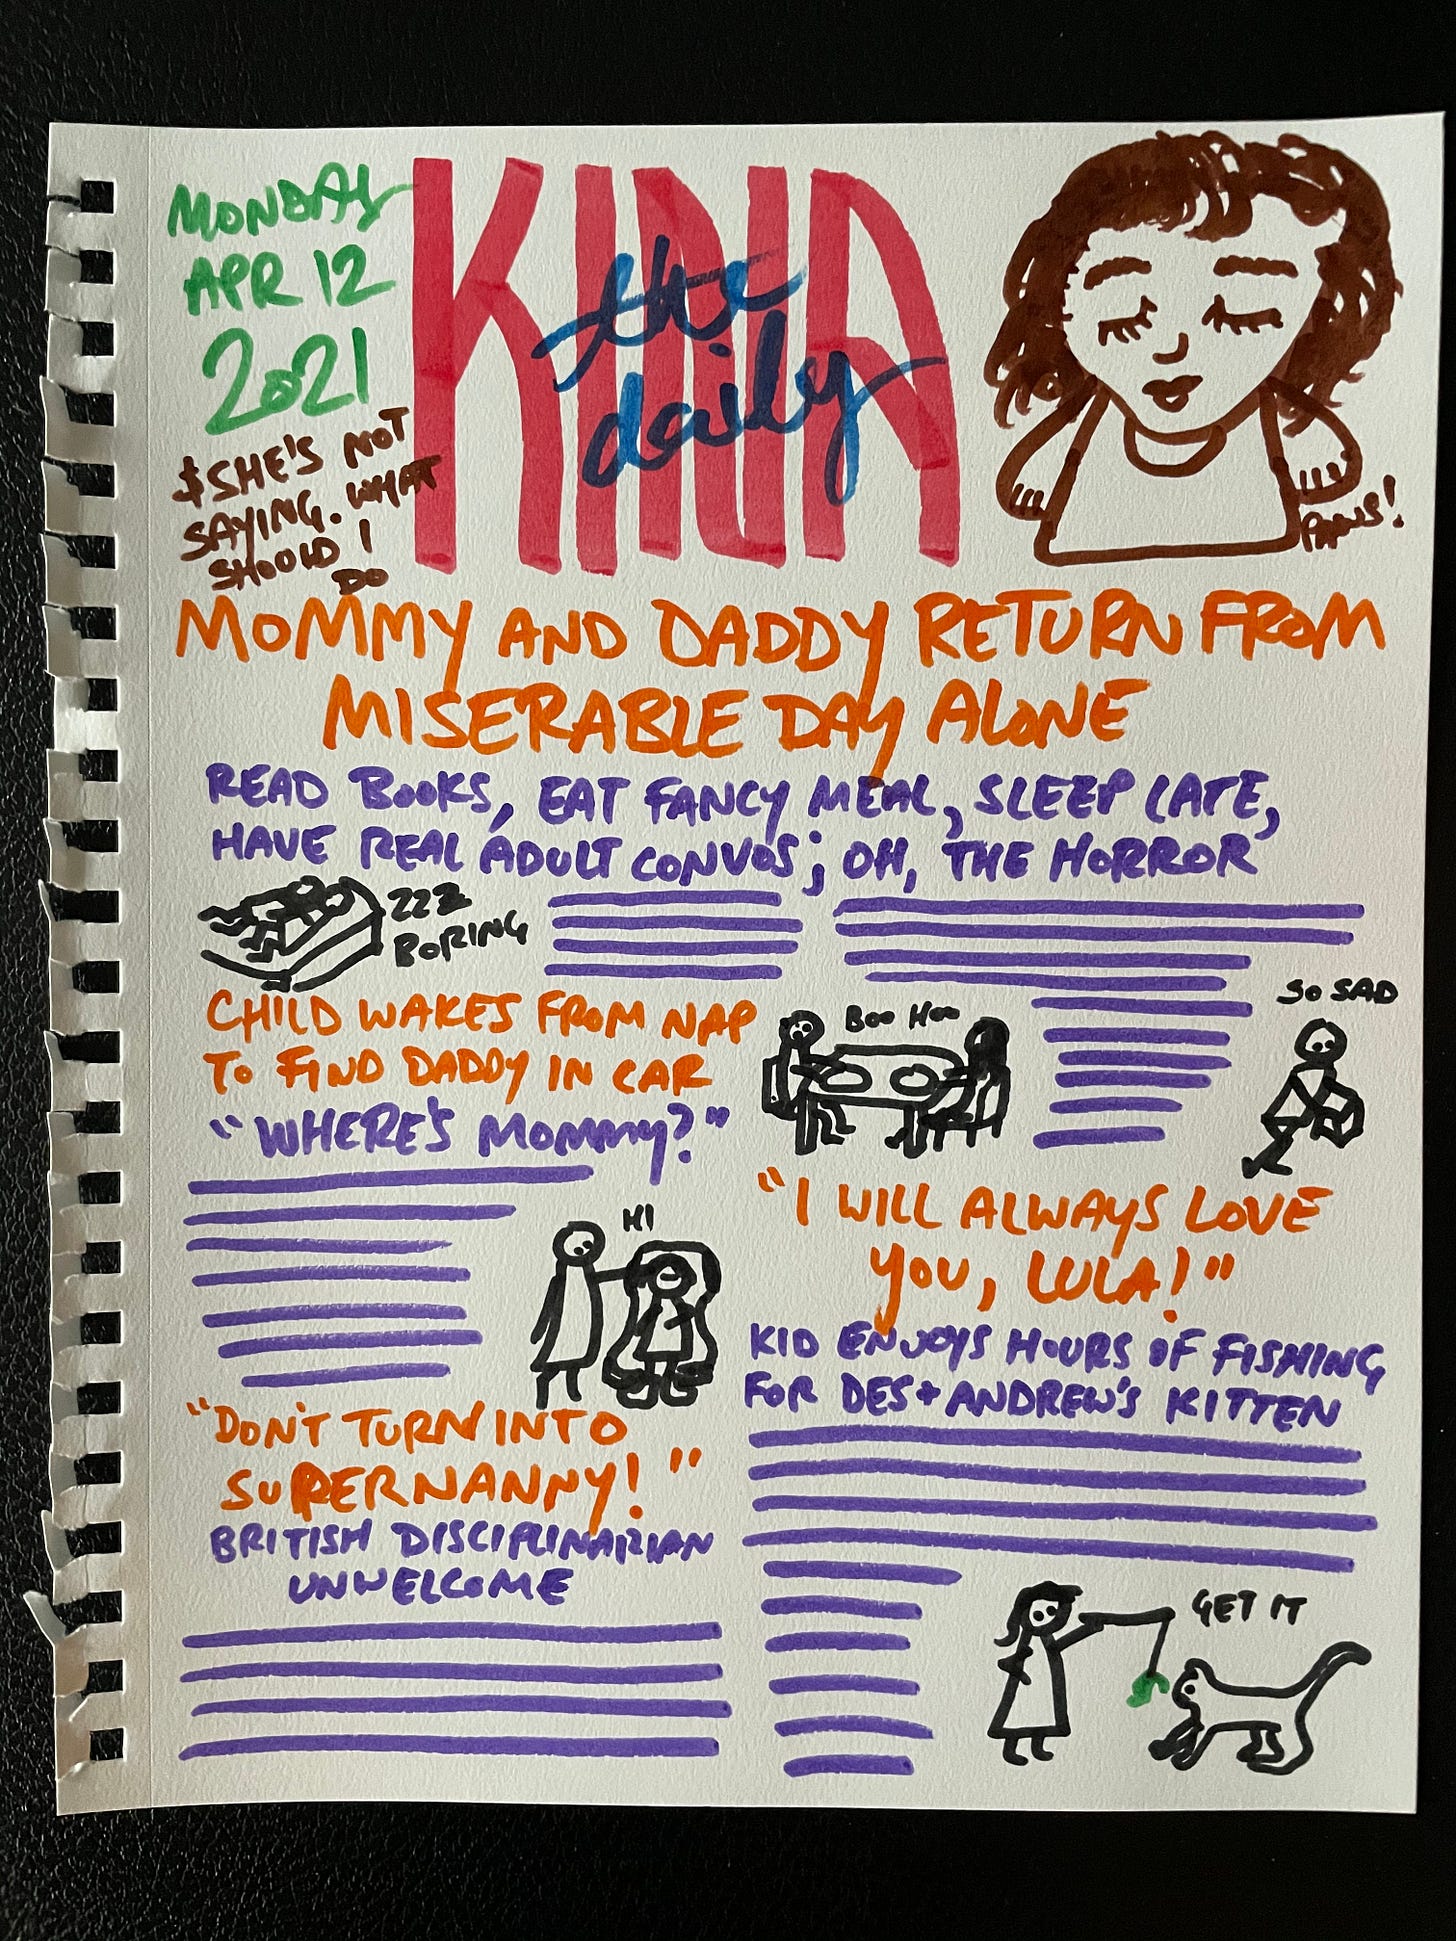 MONDAY
APR 12
2021
$SHE'S NOT
SAYING. WHAT
SHOULD I
DO
KINA
the
daily
PAWS!
MOMMY AND DADDY RETURN FROM
MISERABLE DAY ALONE
READ BOOKS, EAT FANCY MEAL, SLEEP LATE,
HAVE REAL ADULT CONVOS; OH, THE HORROR
ZZZ
BORING
CHILD WAKES FROM NAP
TO FIND DADDY IN CAR
"WHERE'S MOMMY?"
HI
BOO HOO
SO SAD
"DON'T TURN INTO
SUPERNANNY!"
BRITISH DISCIPLINARIAN
UNWELCOME
"I WILL ALWAYS LOVE
YOU, LULA!"
KID ENJOYS HOURS OF FISHING
FOR DES+ANDREW'S KITTEN
GET IT